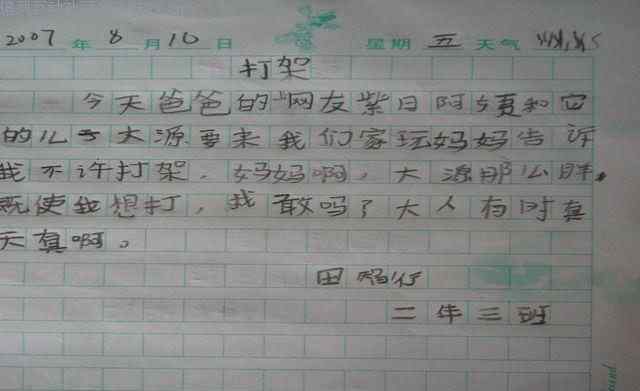 2007 年 8 月 10 日 星期 五 天气
打架
今天爸爸的"网友紫日阿姨和它
的儿子大源要来我们家玩妈妈告诉
我不许打架。妈妈啊，大源那么胖，
既使我想打，我敢吗？大人有时真
天真啊。
田
二年三班